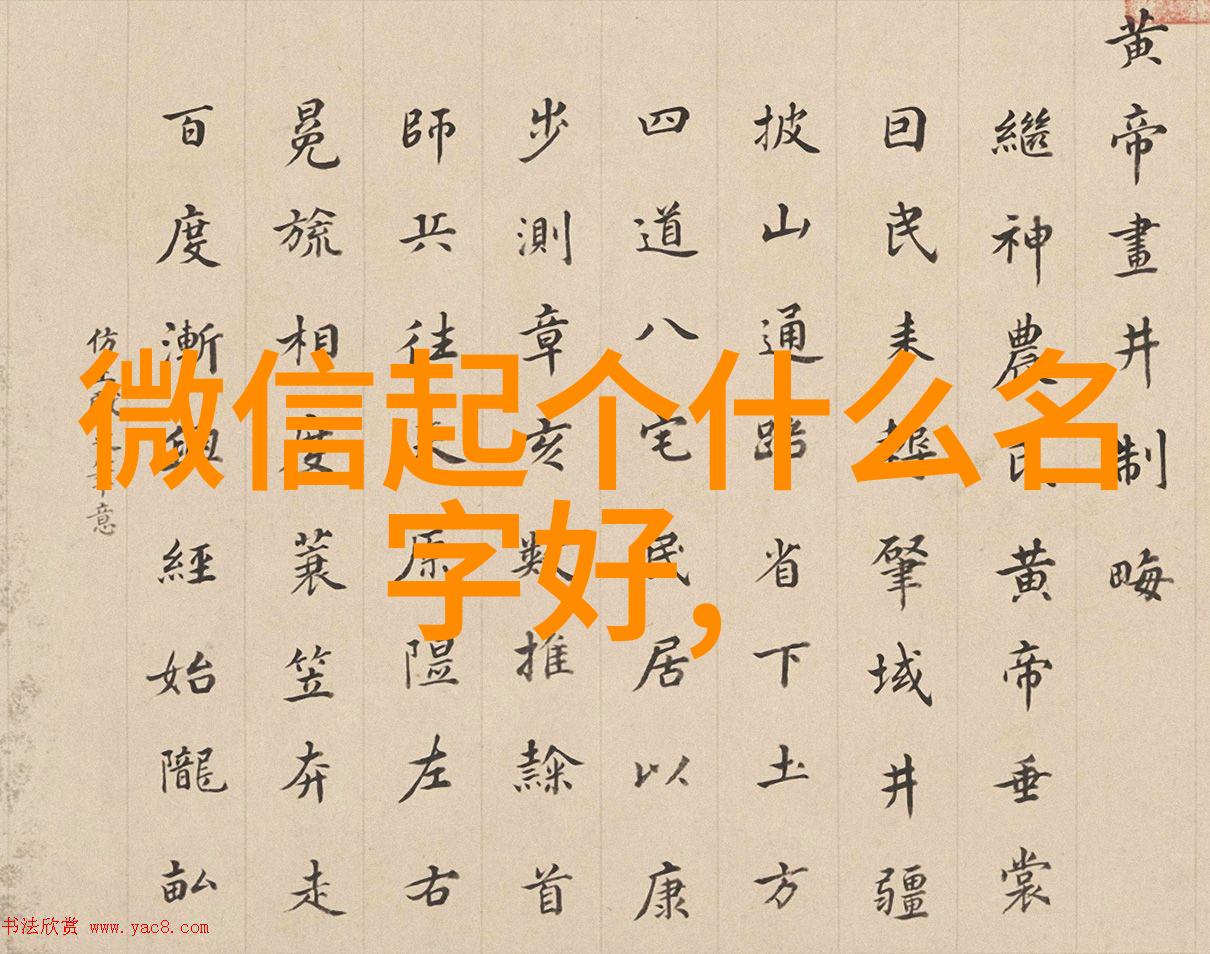 微信起个什么名
字好,
黄帝畫井制畮
繼神農氏黄帝垂裳
囙民耒肇域井疆
披山通省下土方
四道八宅民居以康
步測章亥數推隸首
師兵往原隰左右
冕旒相度蓑笠奔走
百度漸經始隴畝
仿意
书法欣赏 www.yac8.com